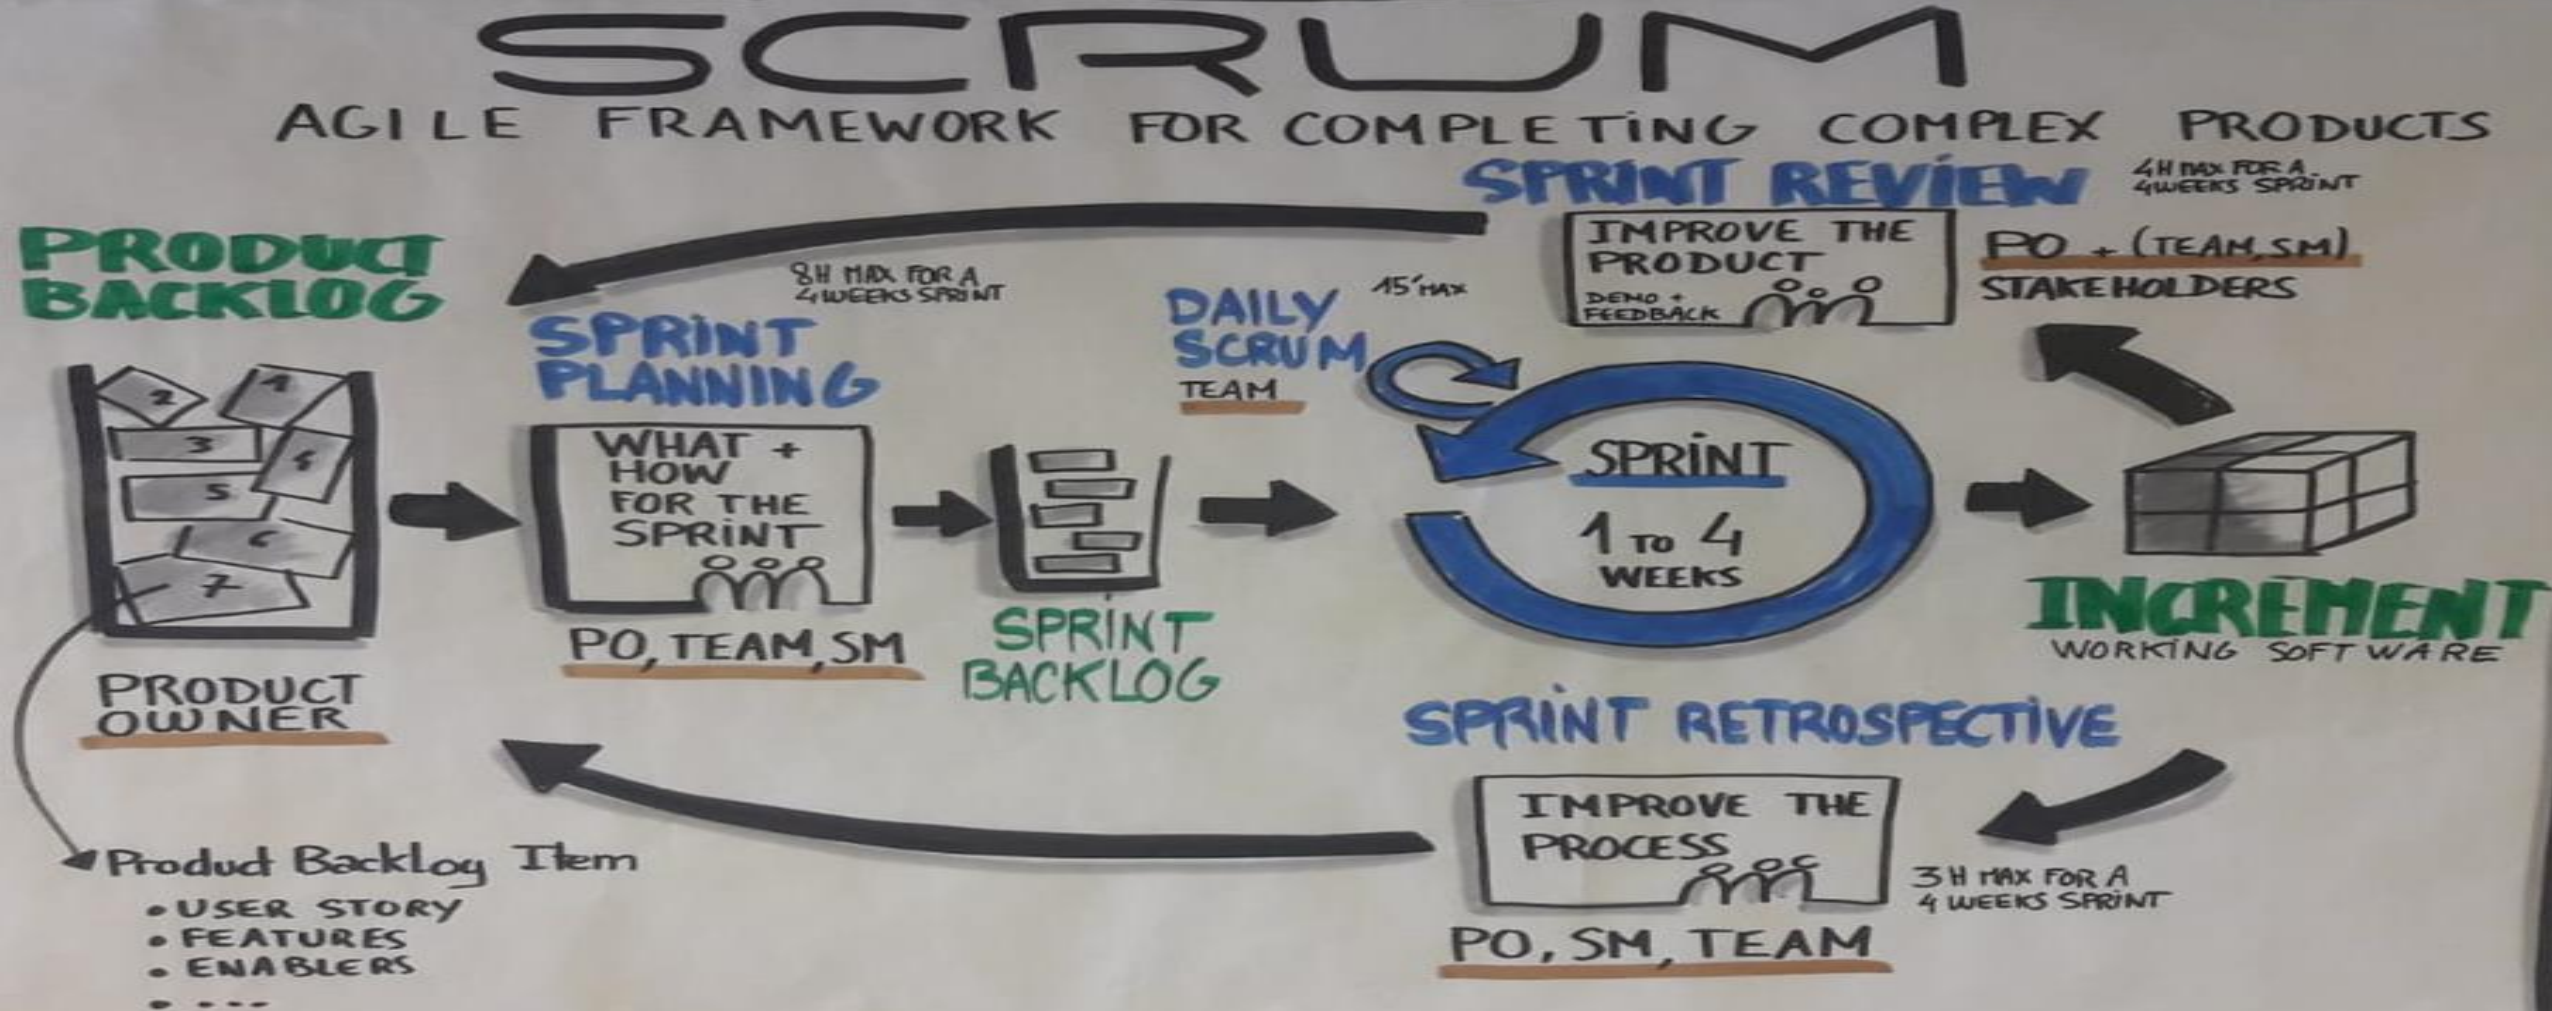 SCRUM
AGILE FRAMEWORK FOR COMPLETING COMPLEX PRODUCTS
PRODUCT
BACKLOG
2
1
3
4
5
6
7
PRODUCT
OWNER
Product Backlog Item
• USER STORY
• FEATURES
• ENABLERS
• ...
8H MAX FOR A
4 WEEKS SPRINT
SPRINT
PLANNING
WHAT +
HOW
FOR THE
SPRINT
PO, TEAM, SM
SPRINT
BACKLOG
DAILY
SCRUM
TEAM
15' MAX
SPRINT
1 TO 4
WEEKS
INCREMENT
WORKING SOFTWARE
SPRINT REVIEW
4H MAX FOR A
4 WEEKS SPRINT
IMPROVE THE
PRODUCT
DEMO +
FEEDBACK
PO + (TEAM, SM)
STAKEHOLDERS
SPRINT RETROSPECTIVE
IMPROVE THE
PROCESS
3H MAX FOR A
4 WEEKS SPRINT
PO, SM, TEAM